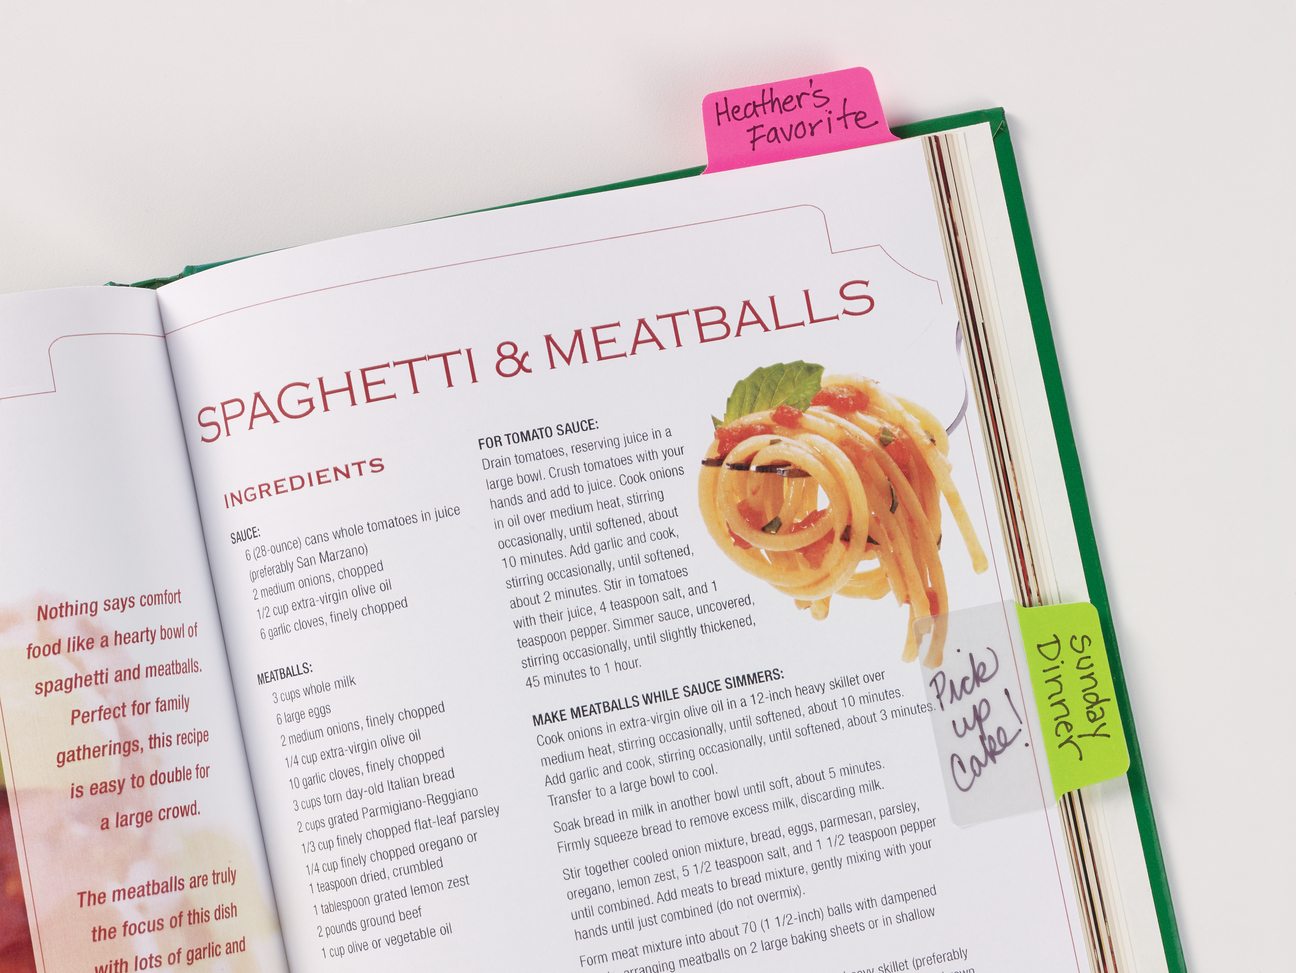 Heather's
Favorite
SPAGHETTI & MEATBALLS
INGREDIENTS
SAUCE:
6 (28-ounce) cans whole tomatoes in juice
(preferably San Marzano)
2 medium onions, chopped
1/2 cup extra-virgin olive oil
6 garlic cloves, finely chopped
MEATBALLS:
3 cups whole milk
6 large eggs
2 medium onions, finely chopped
1/4 cup extra-virgin olive oil
10 garlic cloves, finely chopped
3 cups torn day-old Italian bread
2 cups grated Parmigiano-Reggiano
1/3 cup finely chopped flat-leaf parsley
1/4 cup finely chopped oregano or
1 teaspoon dried, crumbled
1 tablespoon grated lemon zest
2 pounds ground beef
1 cup olive or vegetable oil
FOR TOMATO SAUCE:
Drain tomatoes, reserving juice in a
large bowl. Crush tomatoes with your
hands and add to juice. Cook onions
in oil over medium heat, stirring
occasionally, until softened, about
10 minutes. Add garlic and cook,
stirring occasionally, until softened,
about 2 minutes. Stir in tomatoes
with their juice, 4 teaspoon salt, and 1
teaspoon pepper. Simmer sauce, uncovered,
stirring occasionally, until slightly thickened,
45 minutes to 1 hour.
MAKE MEATBALLS WHILE SAUCE SIMMERS:
Cook onions in extra-virgin olive oil in a 12-inch heavy skillet over
medium heat, stirring occasionally, until softened, about 10 minutes.
Add garlic and cook, stirring occasionally, until softened, about 3 minutes.
Transfer to a large bowl to cool.
Soak bread in milk in another bowl until soft, about 5 minutes.
Firmly squeeze bread to remove excess milk, discarding milk.
Stir together cooled onion mixture, bread, eggs, parmesan, parsley,
oregano, lemon zest, 5 1/2 teaspoon salt, and 1 1/2 teaspoon pepper
until combined. Add meats to bread mixture, gently mixing with your
hands until just combined (do not overmix).
Form meat mixture into about 70 (1 1/2-inch) balls with dampened
arranging meatballs on 2 large baking sheets or in shallow
skillet (preferably
Pick
up
Cake!
Sunday
Dinner
Nothing says comfort
food like a hearty bowl of
spaghetti and meatballs.
Perfect for family
gatherings, this recipe
is easy to double for
a large crowd.
The meatballs are truly
the focus of this dish
with lots of garlic and